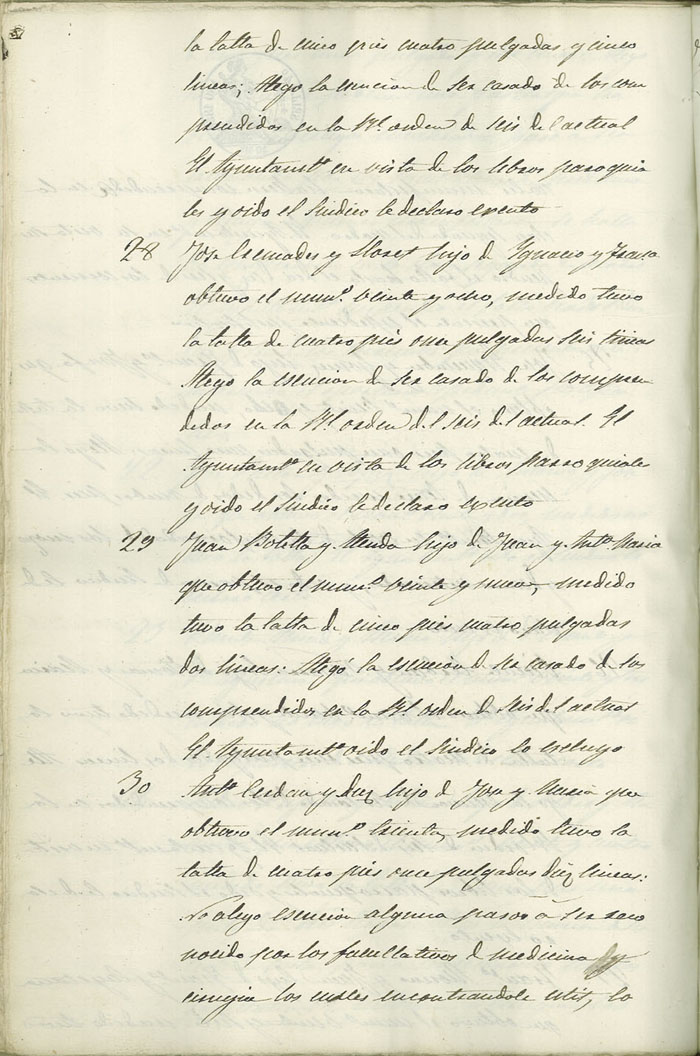 la talla de cinco pies cuatro pulgadas y cinco
lineas; Alego la esencion de ser casado de los com
prendidos en la Rl. orden de seis del actual
El Ayuntamto. en vista de los libros parroquia
les y oido el Sindico le declaro exento
28 Jose Cremades y Lloret hijo de Ignacio y Franca.
obtuvo el numo. veinte y ocho, medido tuvo
la talla de cuatro pies once pulgadas seis lineas
Alego la esencion de ser casado de los compren
didos en la Rl. orden del seis del actual. El
Ayuntamto. en vista de los libros parroquiales
y oido el Sindico le declaro exento
29 Juan Botella y hijo de Juan y Anta. Maria
que obtuvo el numo. veinte y nueve, medido
tuvo la talla de cinco pies cuatro pulgadas
dos lineas: Alegó la esencion de ser casado de los
comprendidos en la Rl. orden de seis del actual
El Ayuntamto. oido el Sindico lo escluyo
30 Anto. Cerdan y Diez hijo de Jose y Maria que
obtuvo el numo. treinta, medido tuvo la
talla de cuatro pies once pulgadas diez lineas:
No alego esencion alguna paso á ser reco
nocido por los facultativos de medicina y
cirugia los cuales encontrandole util, lo